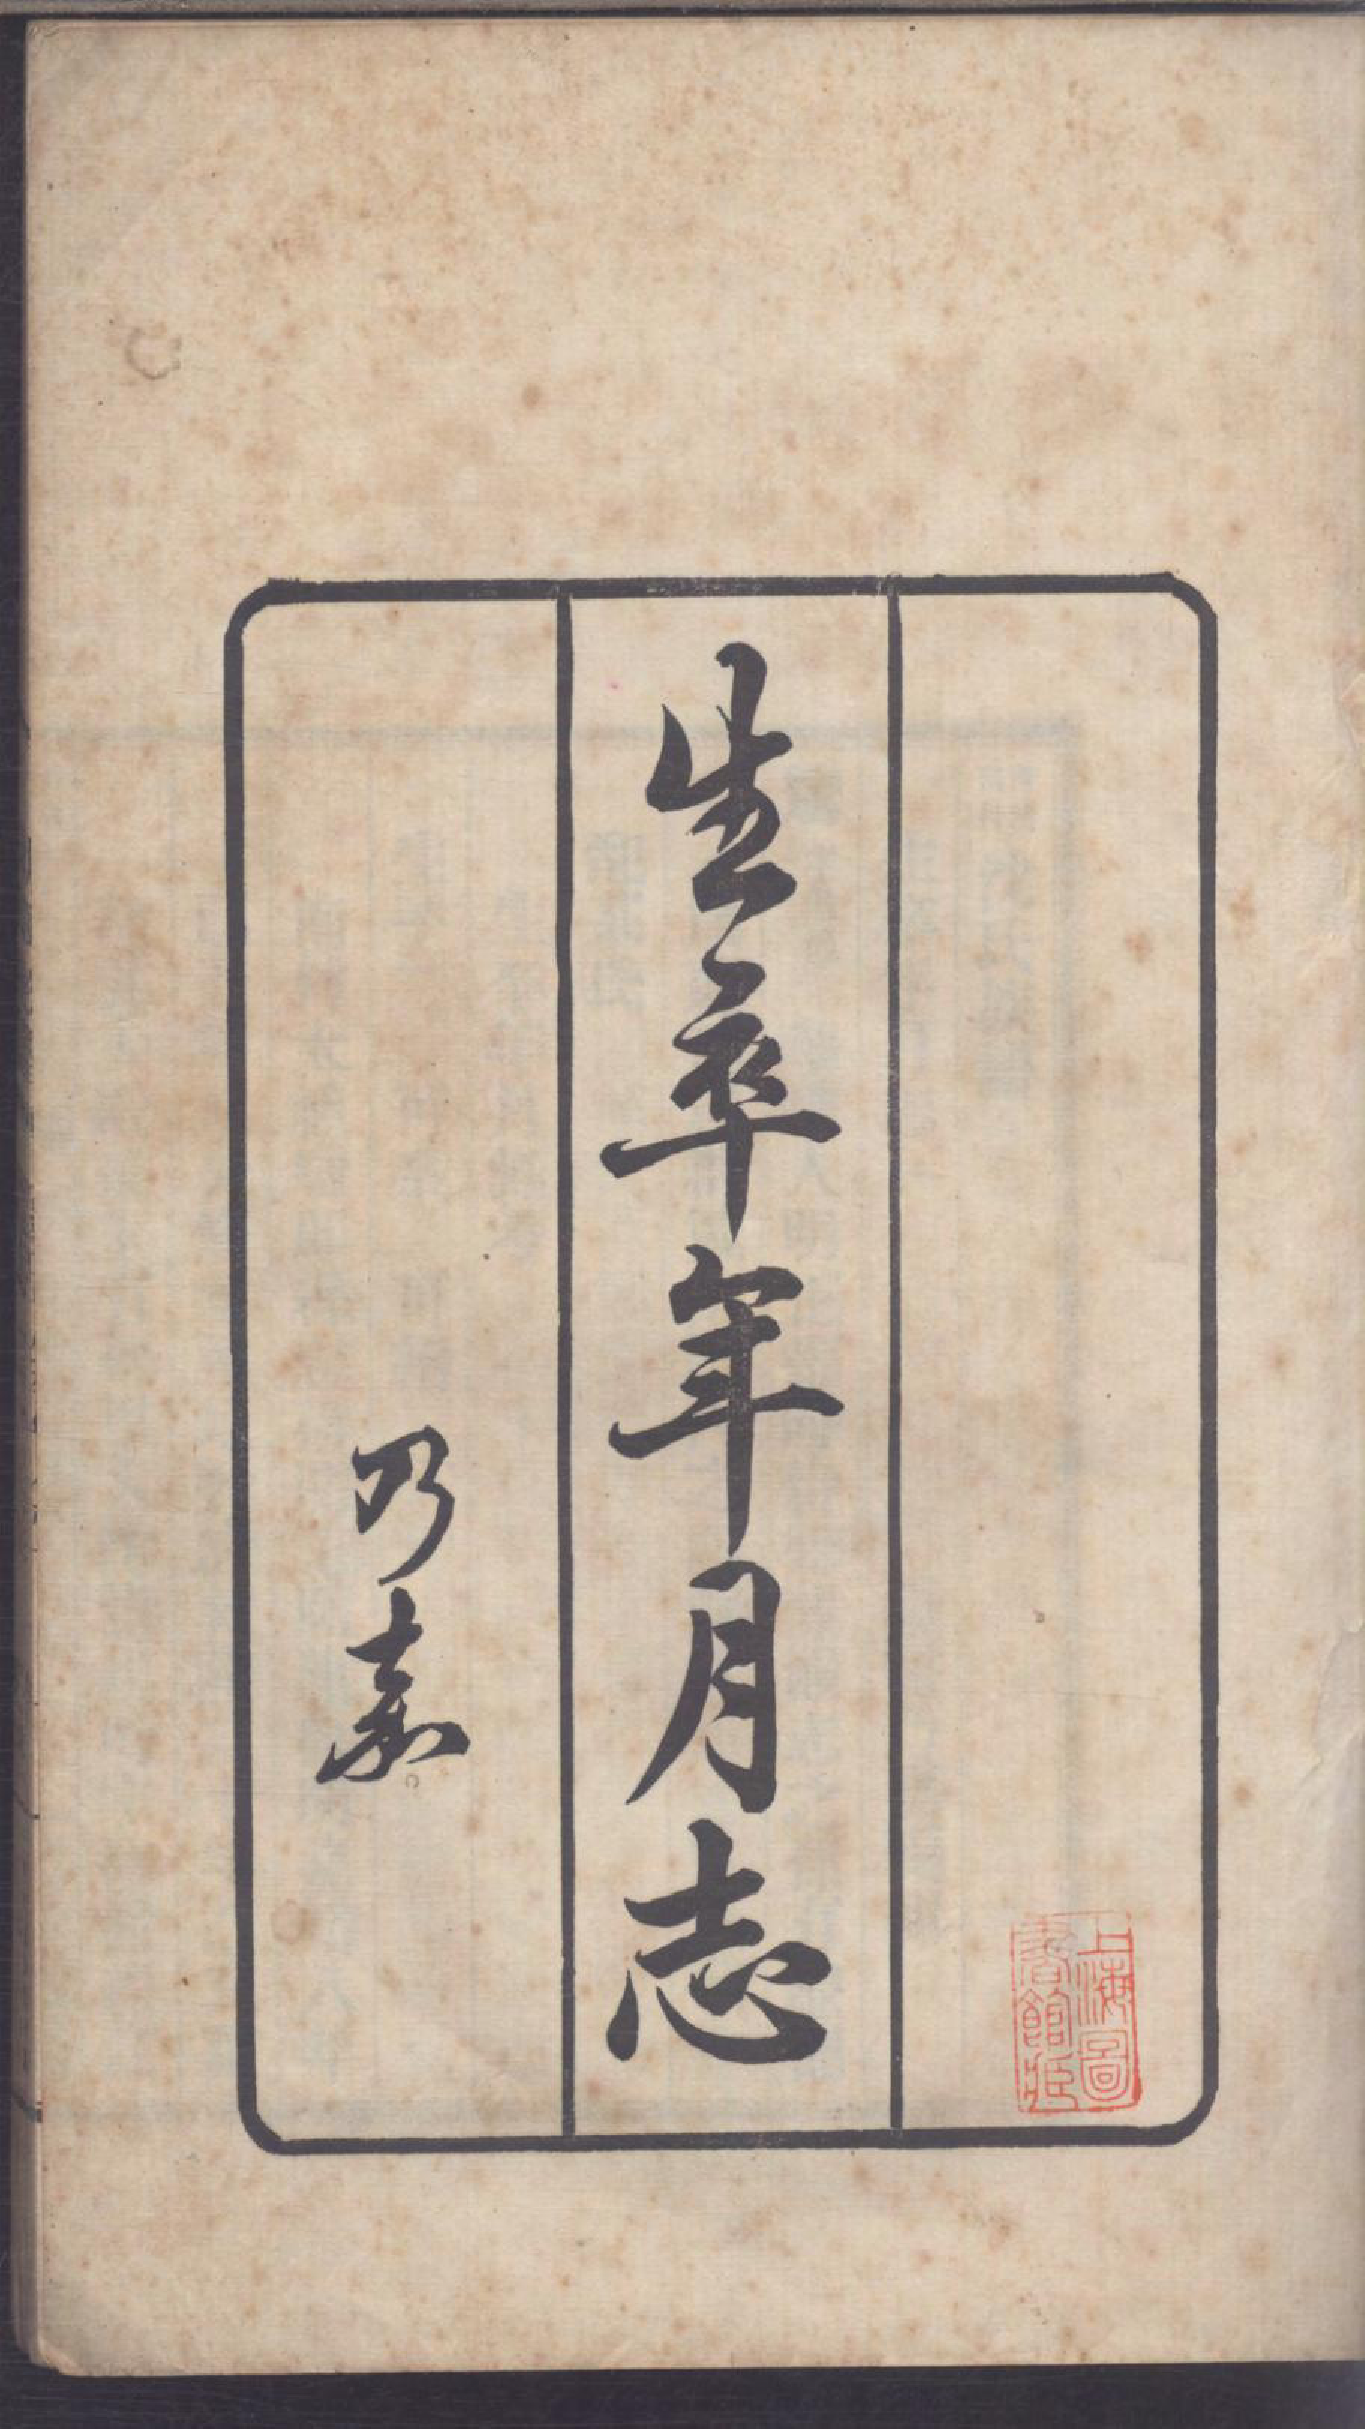 生卒年月志
乃嘉
上海圖
書館藏